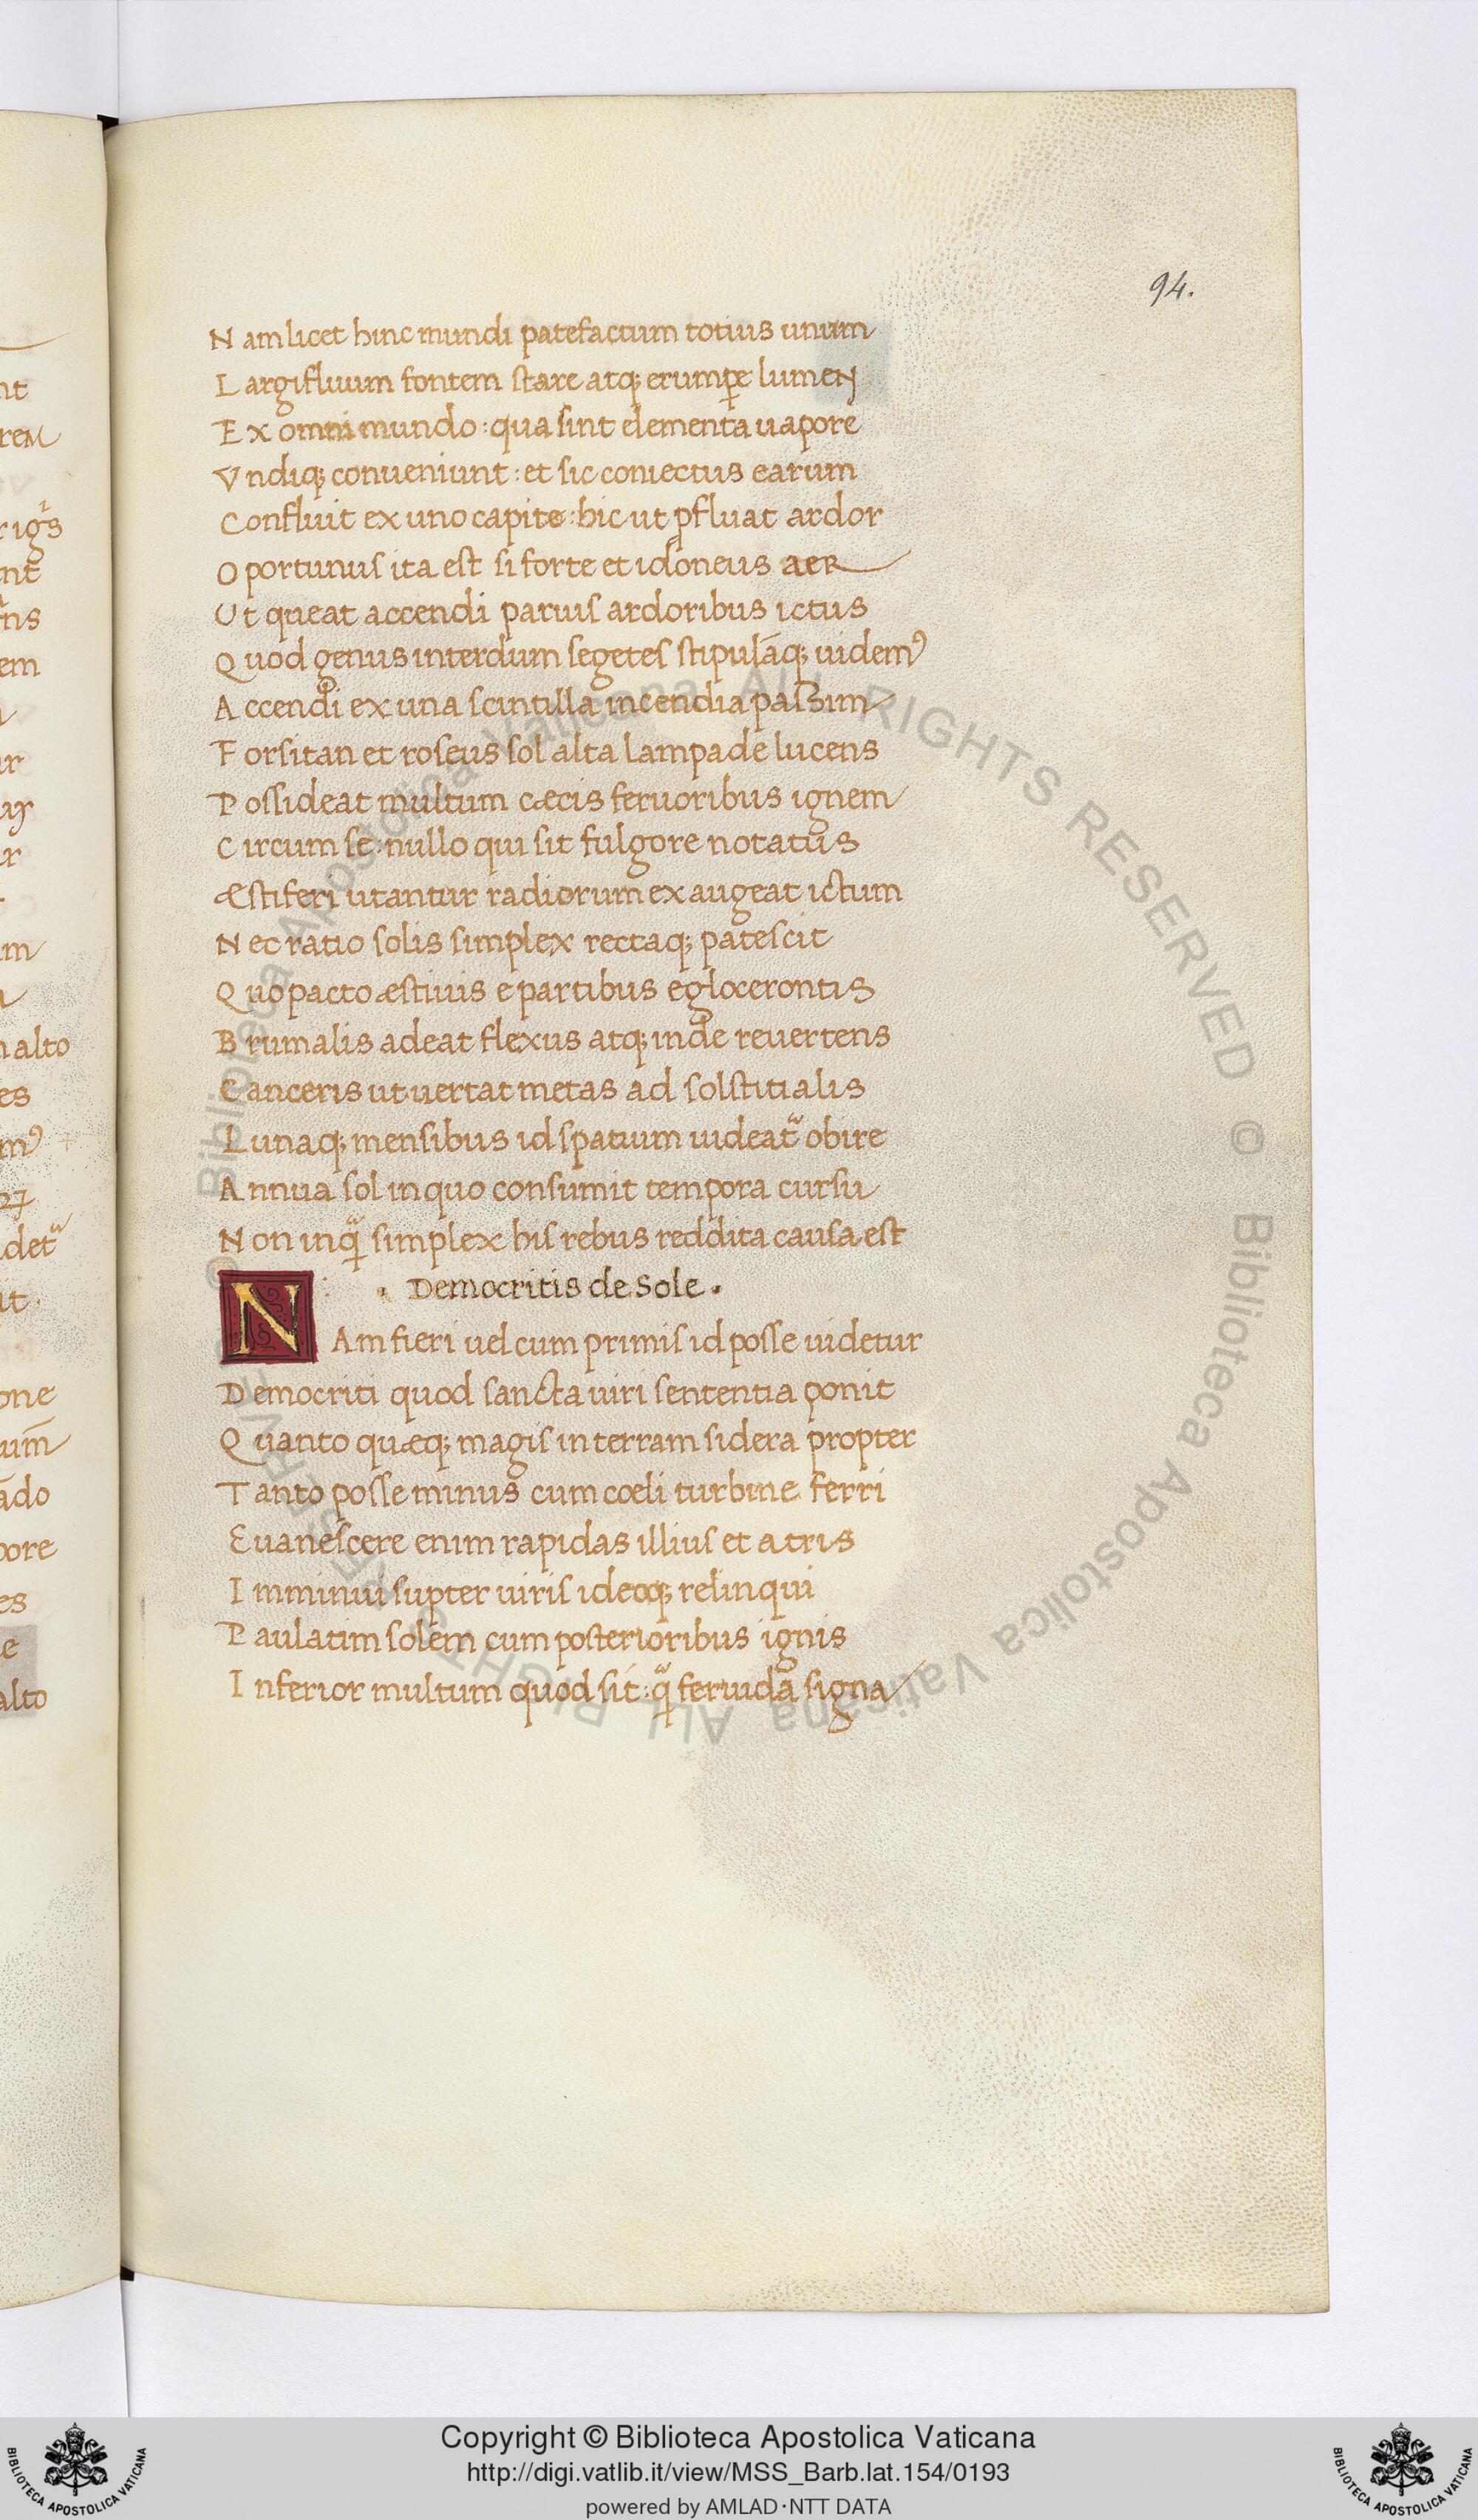 94.
N am licet hinc mundi patefactum totius unum
L argifluum fontem stare atq; erumꝑe lumen
E x omni mundo : qua sint elementa uapore
V ndiq; conueniunt : et sic coniectus earum
C onfluit ex uno capite : hic ut ꝓfluat ardor
O portunus ita est si forte et idoneus aer
U t queat accendi paruis ardoribus ictus
Q uod genus interdum segetes stipulāq; uidemꝰ
A ccendi ex una scintilla incendia passim
F orsitan et roseus sol alta lampade lucens
P ossideat multum cæcis feruoribus ignem
C ircum se : nullo qui sit fulgore notatus
Æ stiferi utantur radiorum ex augeat ictum
N ec ratio solis simplex rectaq; patescit
Q uo pacto æstiuis e partibus eglocerontis
B rumalis adeat flexus atq; inde reuertens
C anceris ut uertat metas ad solstitialis
L unaq; mensibus id spatium uideat᷑ obire
A nnua sol in quo consumit tempora cursu
N on inq̃ simplex his rebus reddita causa est
· Democritis de Sole ·
N Am fieri uel cum primis id posse uidetur
D emocriti quod sancta uiri sententia ponit
Q uanto quæq; magis in terram sidera propter
T anto posse minus cum cœli turbine ferri
E uanescere enim rapidas illius et atris
I mminui supter uiris ideoq; relinqui
P aulatim solem cum posterioribus ignis
I nferior multum quod sit : q̃ feruida signa
nt
rem
nt
em
r
m
alto
es
ut
one
um
ādo
pore
es
e
alto
© Biblioteca Apostolica Vaticana ALL RIGHTS RESERVED © Biblioteca Apostolica Vaticana ALL RIGHTS RESERVED
BIBLIOTECA APOSTOLICA VATICANA
Copyright © Biblioteca Apostolica Vaticana
http://digi.vatlib.it/view/MSS_Barb.lat.154/0193
powered by AMLAD·NTT DATA
BIBLIOTECA APOSTOLICA VATICANA